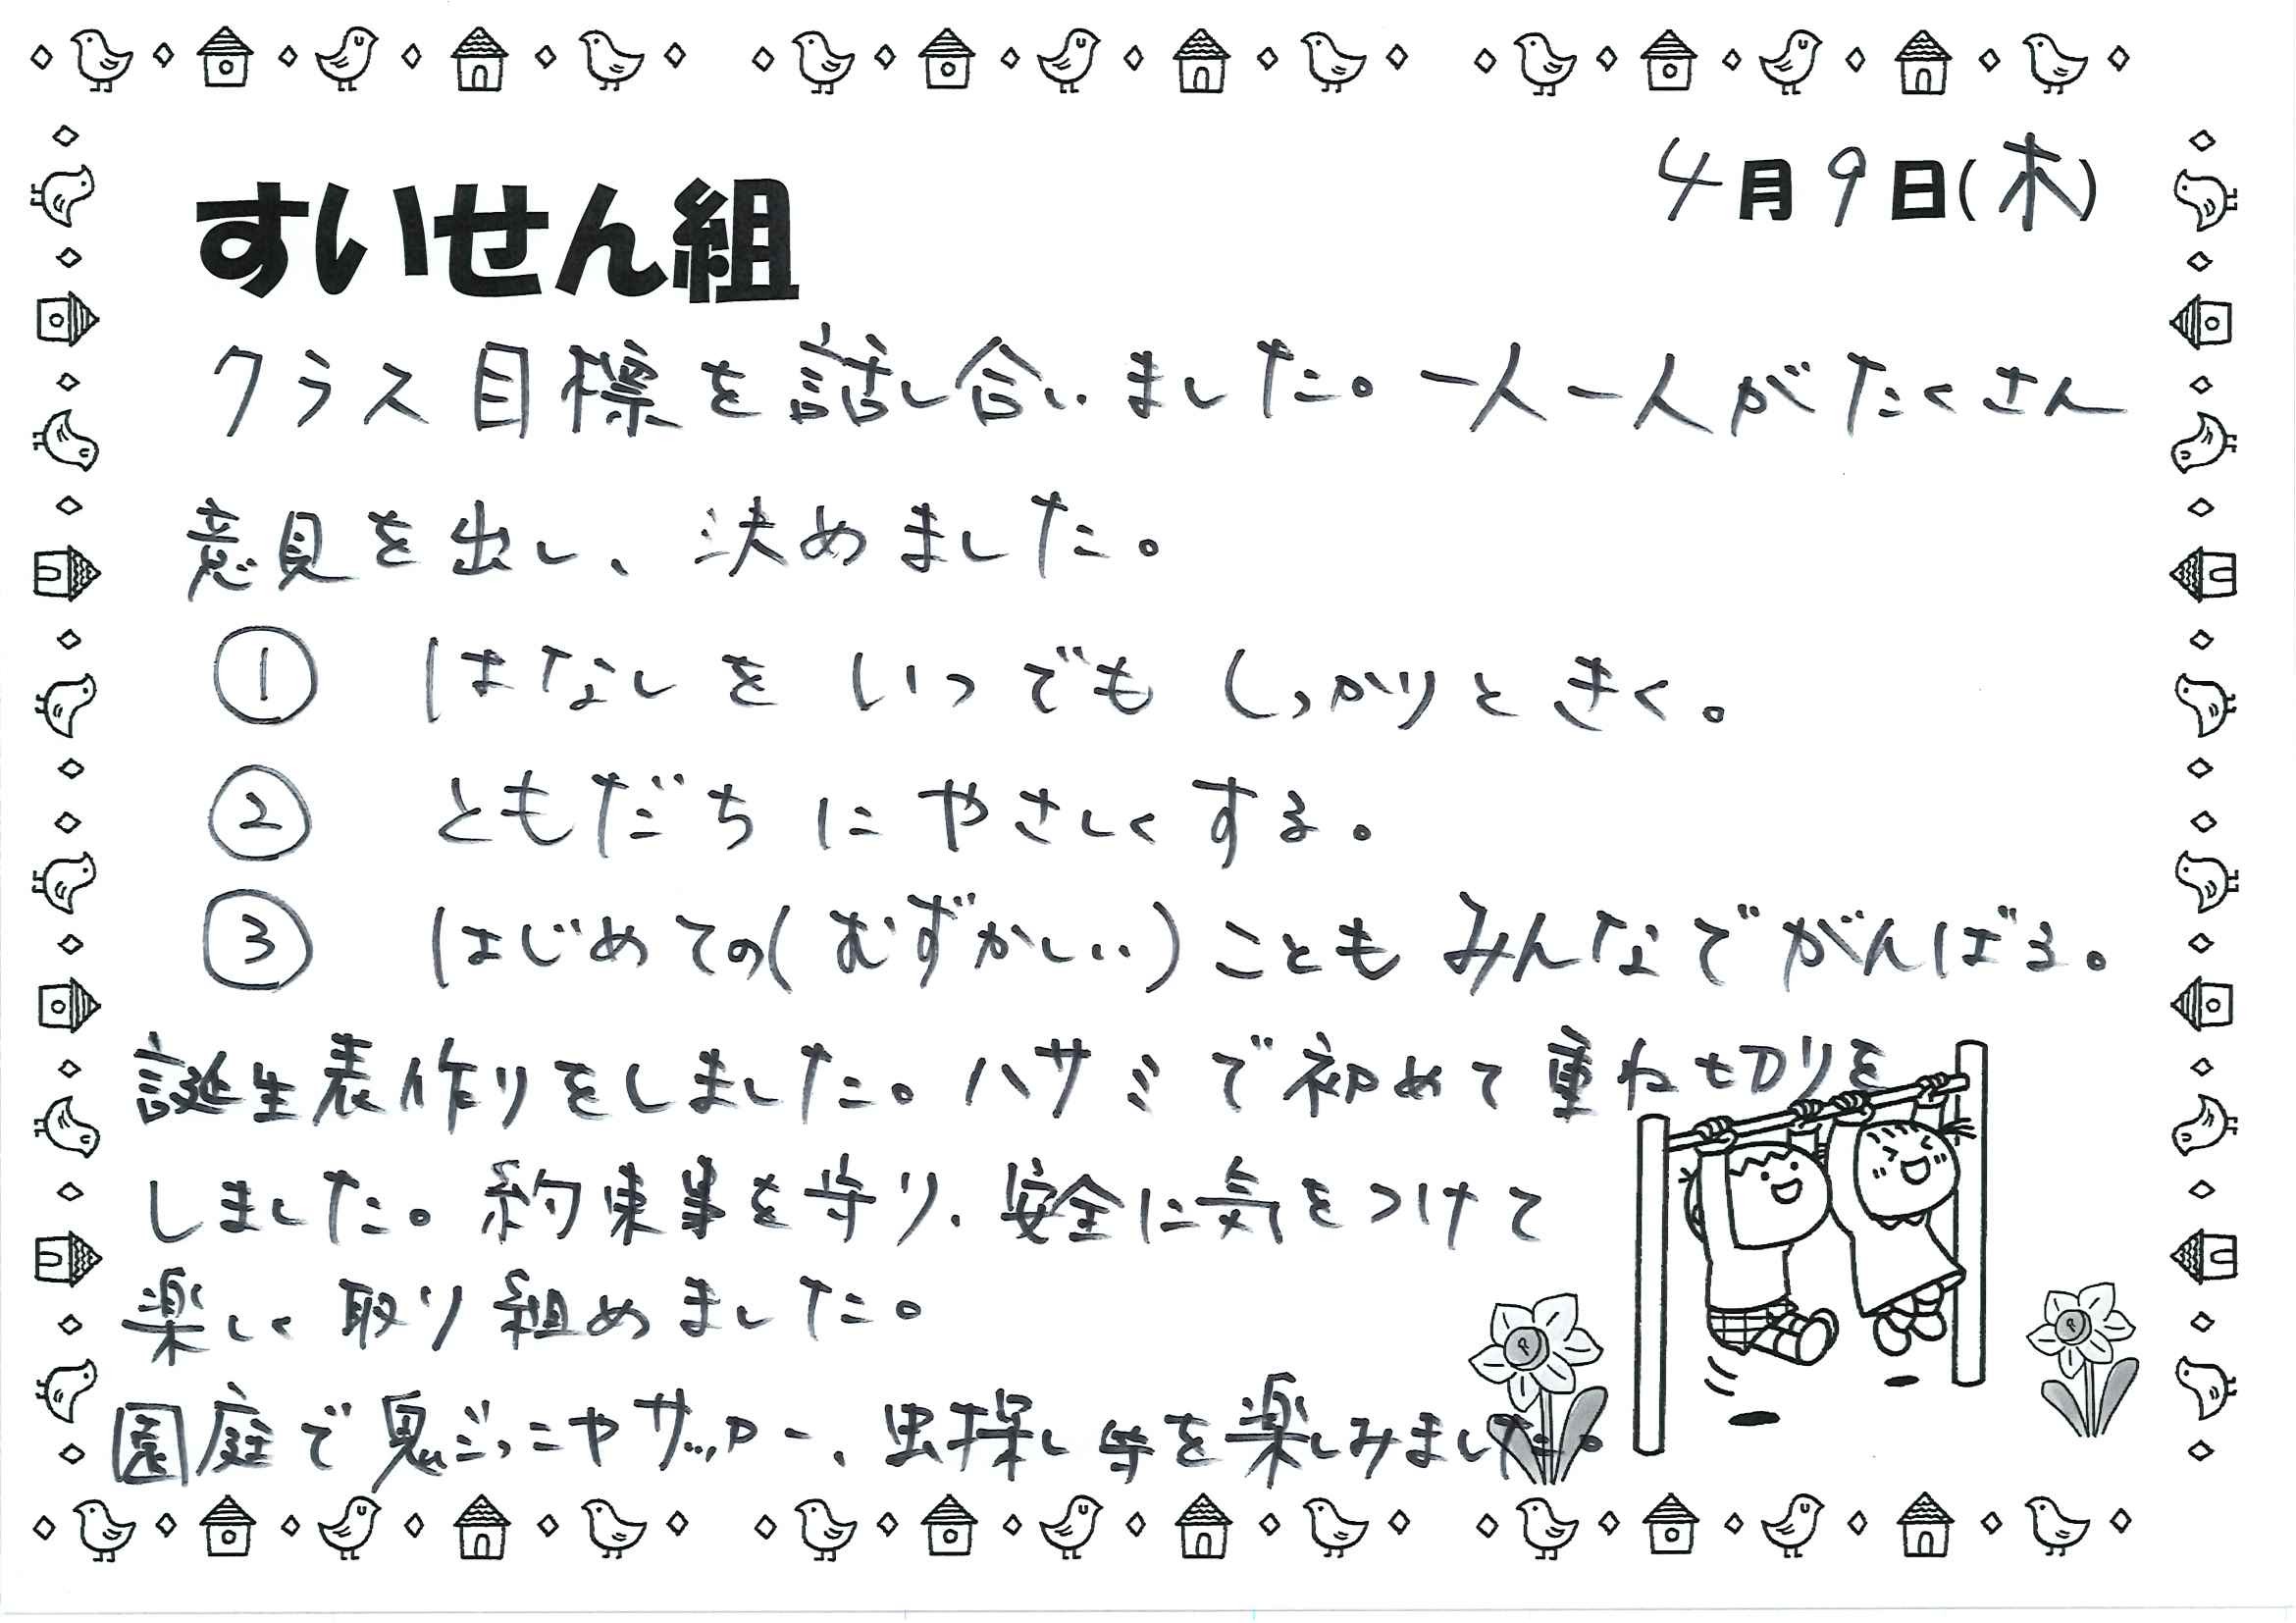 4月9日(木)
すいせん組
クラス目標を話し合いました。一人一人がたくさん
意見を出し、決めました。
① はなしを いつでも しっかりと きく。
② ともだちに やさしく する。
③ はじめての(むずかしい)ことも みんなで がんばる。
誕生表作りをしました。ハサミで初めて重ね切りを
しました。約束事を守り、安全に気をつけて
楽しく取り組めました。
園庭で鬼ごっこやサッカー、虫探し等を楽しみました。